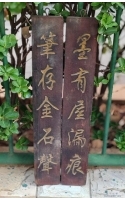 墨有屋漏痕
筆存金石聲